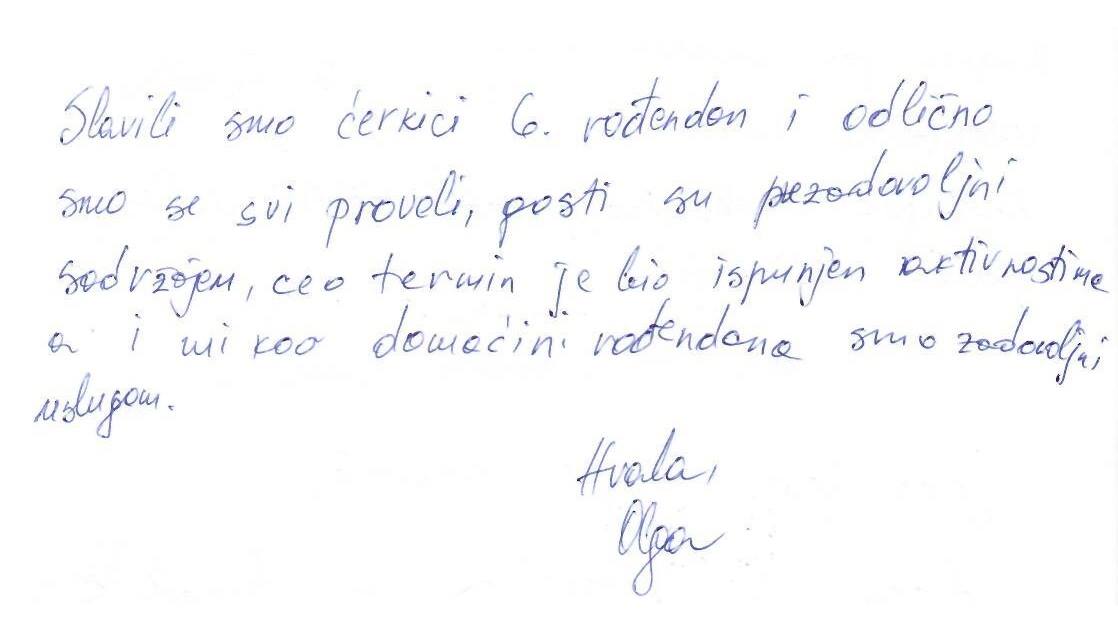 Slavili smo ćerkici 6. rođendan i odlično
smo se svi proveli, gosti su prezadovoljni
sadržajem, ceo termin je bio ispunjen aktivnostima
a i mi kao domaćini rođendana smo zadovoljni
uslugom.
Hvala,
Olga